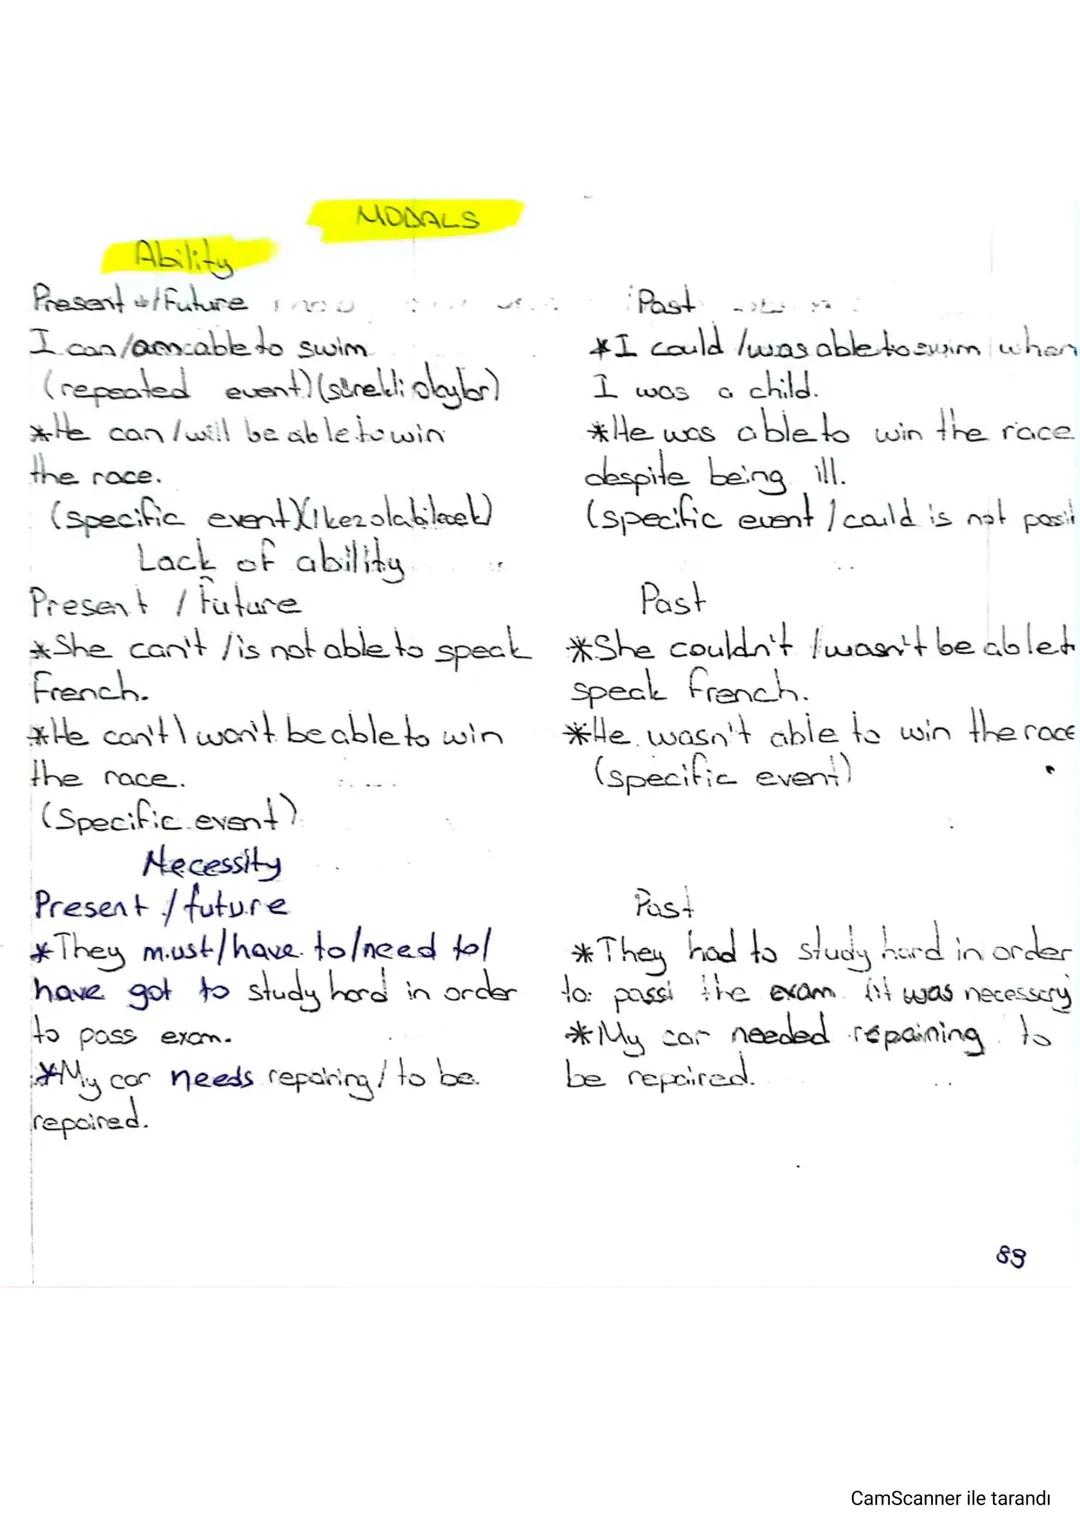 MODALS
Ability
Present /Future
I can/am able to swim
(repeated event) (sürekli olaylar)
*He can / will be able to win
the race.
(specific event) (1 kez olabilecek)
Past
*I could /was able to swim when
I was a child.
*He was able to win the race
despite being ill.
(specific event / could is not
Lack of ability
Present / Future
*She can't / is not able to speak
French.
*He can't \ won't be able to win
the race.
(Specific event)
Past
*She couldn't / wasn't be able t
speak French.
*He wasn't able to win the race
(specific event)
Necessity
Present / future
*They must/have to/need to/
have got to study hard in order
to pass exam.
*My car needs repairing / to be
repaired.
Past
*They had to study hard in order
to pass the exam (it was necessary
*My car needed repaining to
be repaired.
89
CamScanner ile tarandı